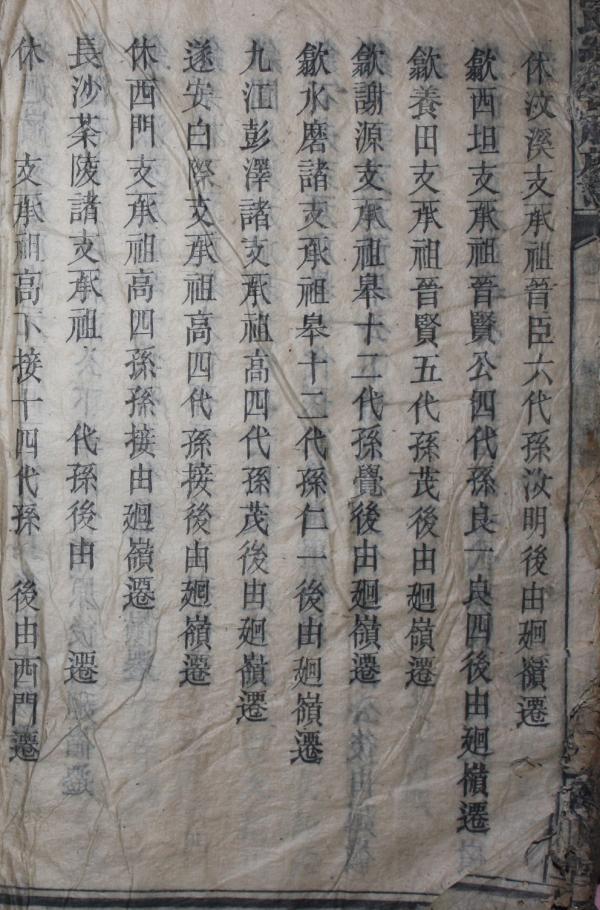 休汶溪支承祖晉臣六代孫汝明後由廻嶺遷
歙西坦支承祖晉賢公四代孫良一良四後由廻嶺遷
歙養田支承祖晉賢五代孫茂後由廻嶺遷
歙謝源支承祖皋十二代孫覺後由廻嶺遷
歙水磨諸支承祖皋十二代孫仁一後由廻嶺遷
九江彭澤諸支承祖高四代孫茂後由廻嶺遷
遂安白際支承祖高四代孫接後由廻嶺遷
休西門支承祖高四孫孫接由廻嶺遷
長沙茶陵諸支承祖 代孫後由 遷
休 支承祖高下接十四代孫 後由西門遷